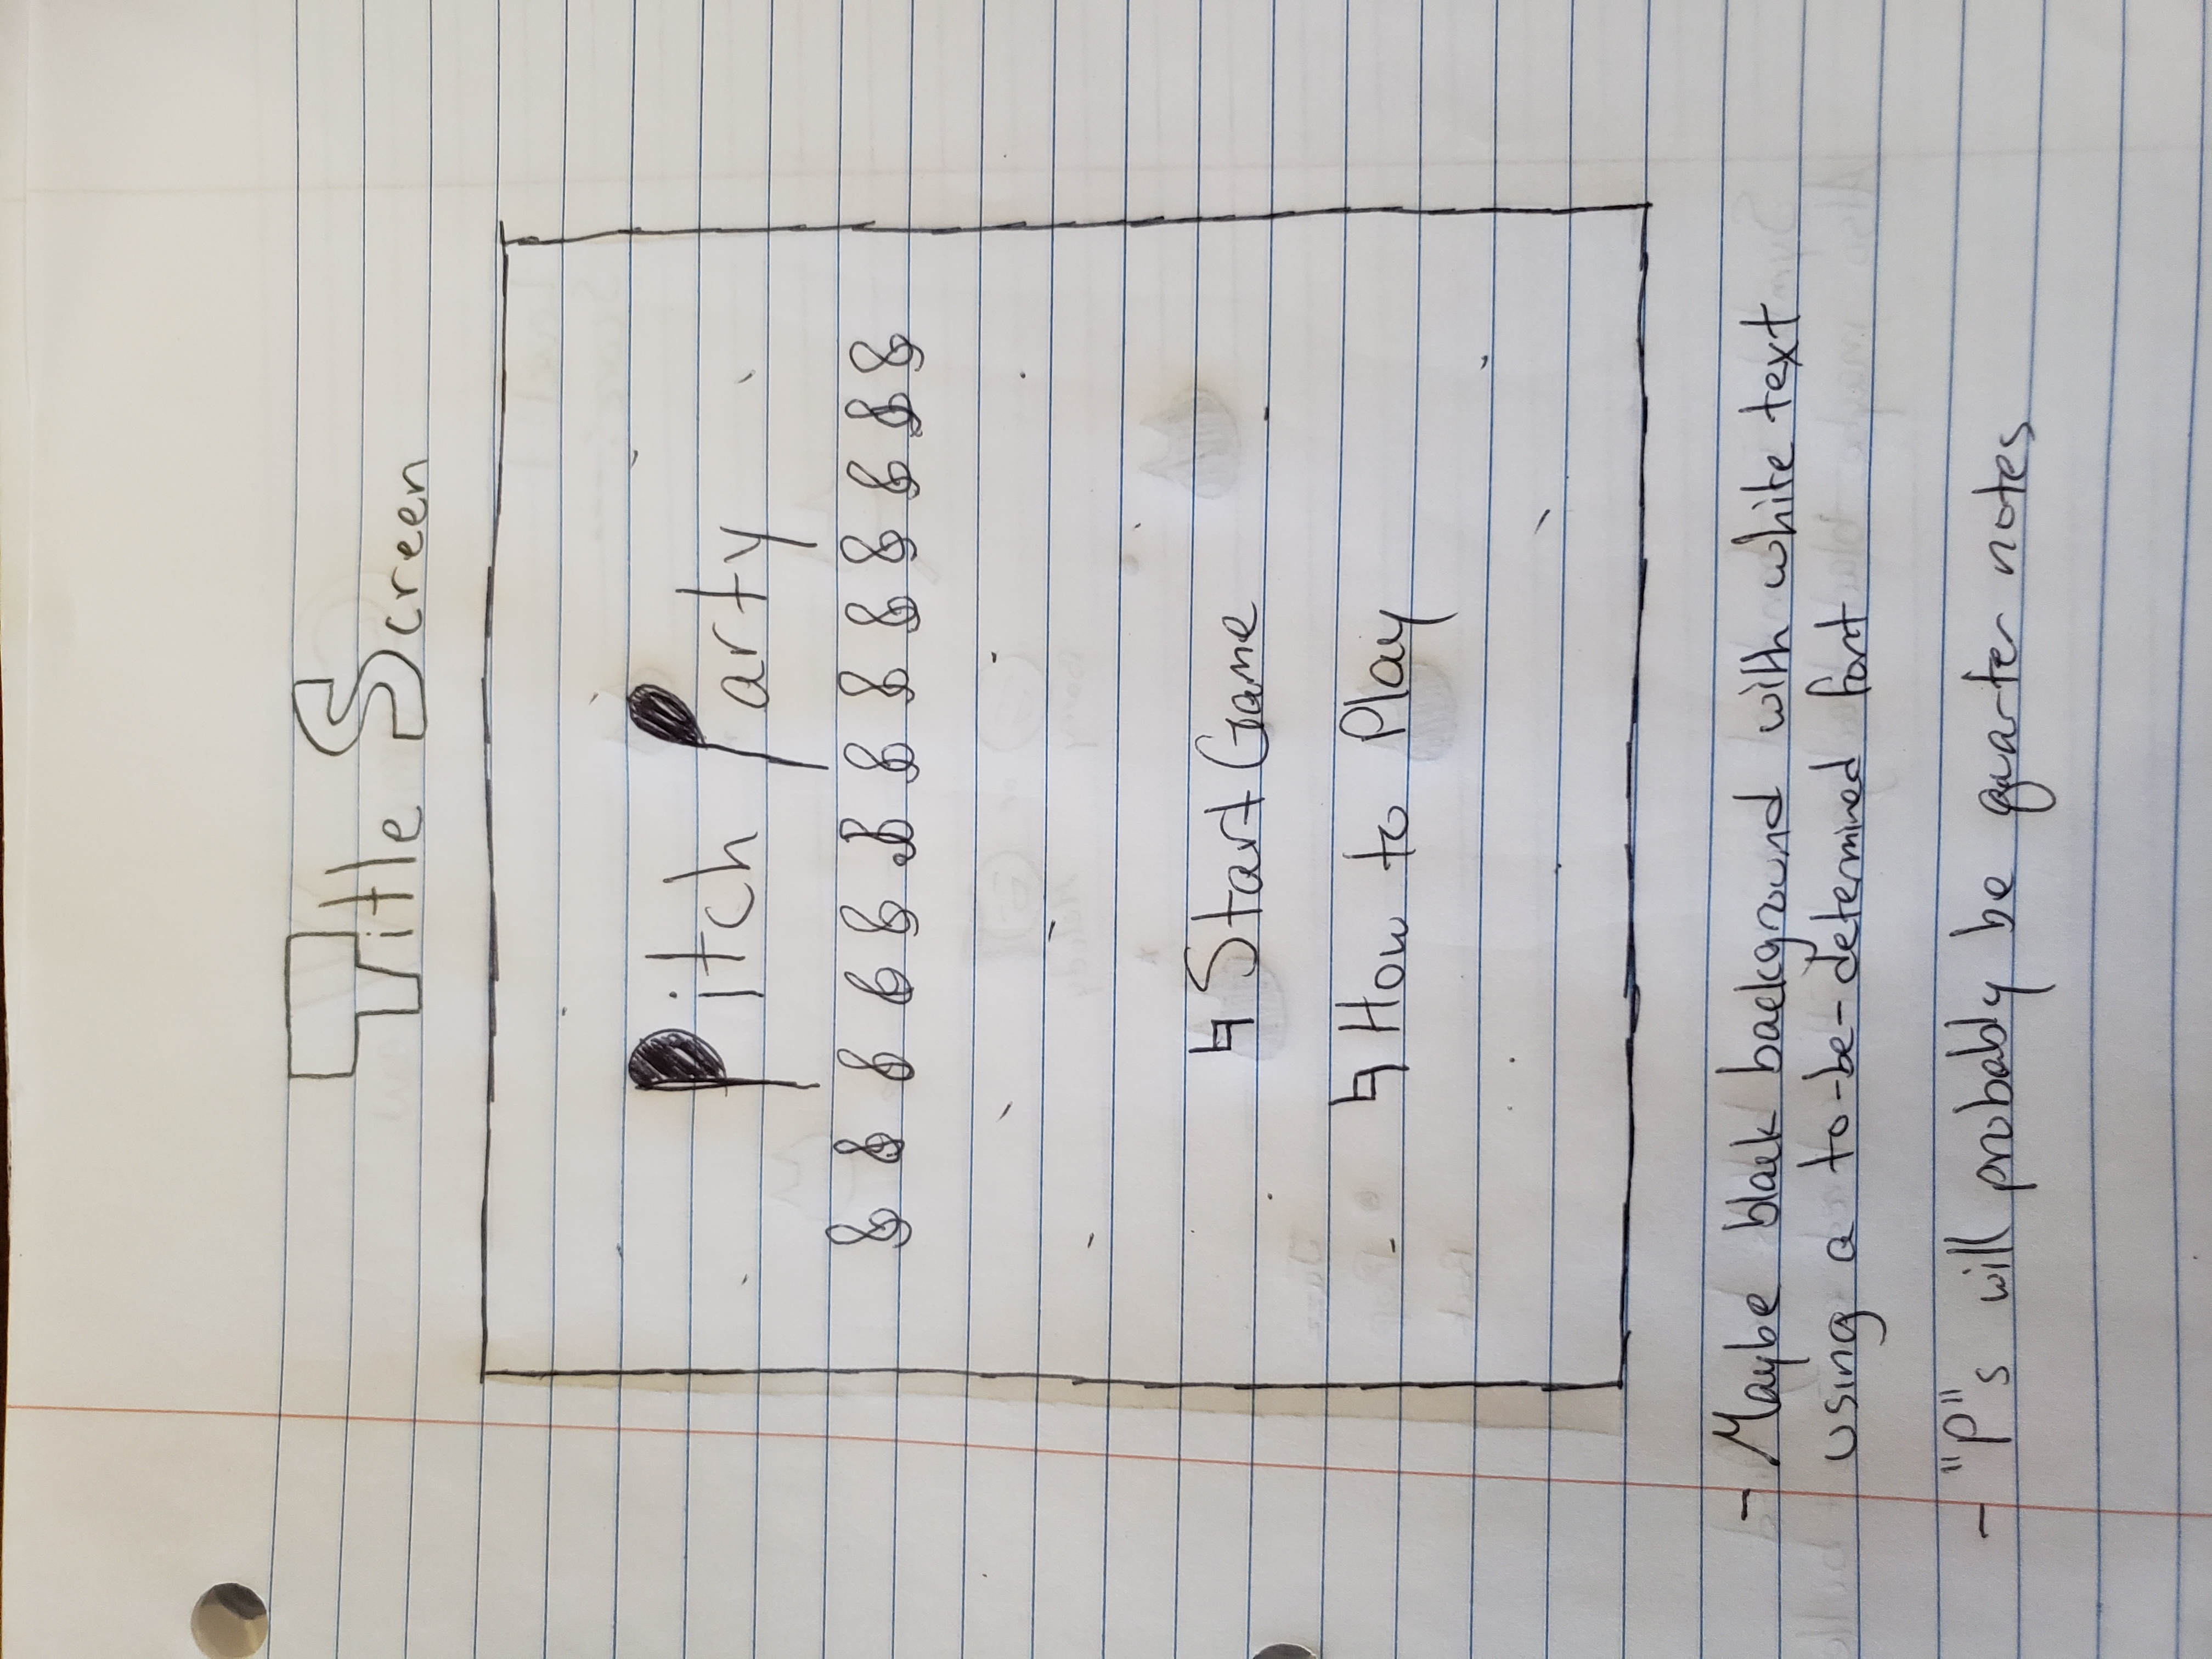 Title Screen
Pitch Party
♮ Start Game
♮ How to Play
- Maybe black background with white text
using a to-be-determined font
- "P"s will probably be quarter notes